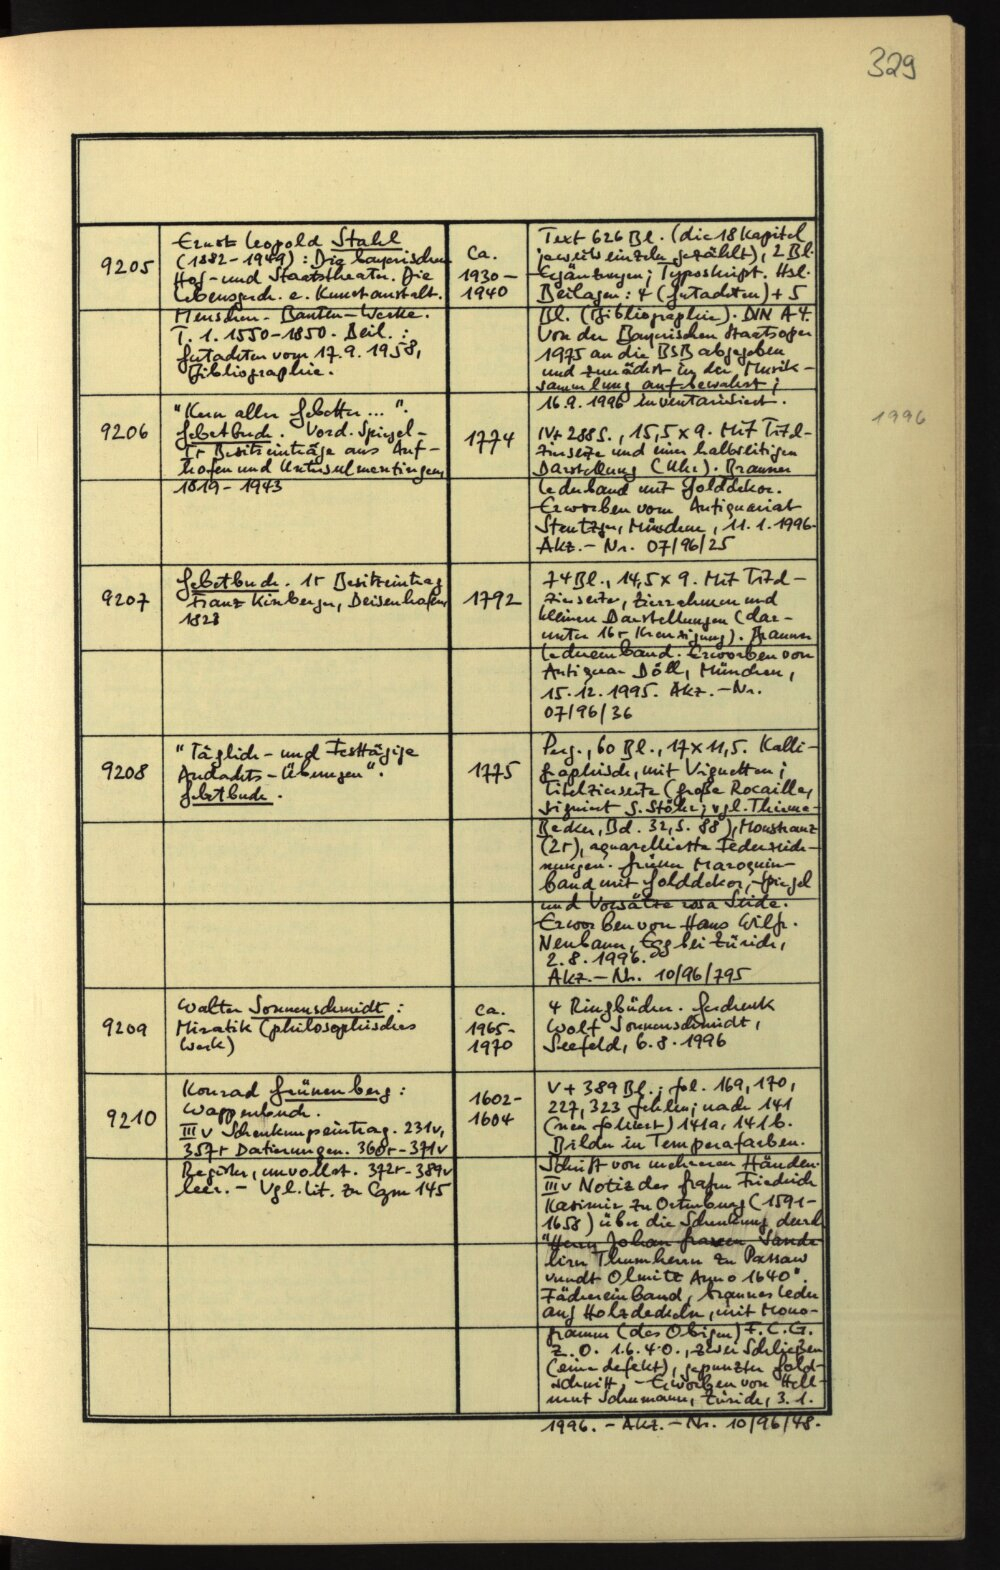 329
9205
Ernst Leopold Stahl
(1882-1949): Die bayerischen
Hof- und Staatstheater. Die
Lebensgesch. e. Kunstanstalt.
Menschen - Bauten - Werke.
T. 1. 1550-1850. Beil.:
Gutachten vom 17.9.1958,
Bibliographie.
Ca.
1930-
1940
Text 626 Bl. (die 18 Kapitel
jeweils einzeln gezählt), 2 Bl.
Ergänzungen; Typoskript. Hsl.
Beilagen: 4 (Gutachten) + 5
Bl. (Bibliographie). DIN A4.
Von der Bayerischen Staatsoper
1975 an die BSB abgegeben
und zunächst in der Musik-
sammlung aufbewahrt;
16.9.1996 inventarisiert.
1996
9206
"Kern aller Gebetter...".
Gebetbuch. Vord. Spiegel-
1r Besitzeinträge aus Auf-
hofen und
1819-1943
1774
IV + 288 S., 15,5 x 9. Mit Titel-
zierseite und einer halbseitigen
Darstellung (Uhr). Brauner
Lederband mit Golddekor.
Erworben vom Antiquariat
München, 11.1.1996.
Akz.-Nr. 07/96/25
9207
Gebetbuch. 1r Besitzeintrag
Franz Kirberger, Deisenhofen
1823
1792
74 Bl., 14,5 x 9. Mit Titel-
zierseite, Zierrahmen und
kleinen Darstellungen (dar-
unter 16r Kreuzigung). Brauner
Ledereinband. Erworben von
Antiquar Döll, München,
15.12.1995. Akz.-Nr.
07/96/36
9208
"Täglich- und Festtägige
Andachts-Übungen".
Gebetbuch.
1775
Perg., 60 Bl., 17 x 11,5. Kalli-
graphisch, mit Vignetten;
Titelzierseite (große Rocaille,
signiert S. Stöhr; vgl. Thieme-
Becker, Bd. 32, S. 88), Monstranz
(2r), aquarellierte Federzeich-
nungen. Grüner Maroquin-
band mit Golddekor, Spiegel
und Vorsätze rosa Seide.
Erworben von Hans Wilfr.
Neubauer, Egg bei Zürich,
2.8.1996.
Akz.-Nr. 10/96/795
9209
Walter Sonnenschmidt:
Miratik (philosophisches
Werk)
ca.
1965-
1970
4 Ringbücher. Geschenk
Wolf Sonnenschmidt,
Seefeld, 6.8.1996
9210
Konrad Grünenberg:
Wappenbuch.
IIIv Schenkungseintrag. 231v,
357r Datierungen. 360r-371v
Register, unvollst. 372r-389v
leer. - Vgl. Lit. zu Cgm 145
1602-
1604
V + 389 Bl.; fol. 169, 170,
227, 323 fehlen; nach 141
(neu foliiert) 141a, 141b.
Bilder in Temperafarben.
Schrift von mehreren Händen.
IIIv Notiz des Grafen Friedrich
Kasimir zu Ortenburg (1591-
1658) über die Schenkung durch
"Herrn Johan
Thumherrn zu Passaw
vundt Olmitz Anno 1640".
Fächereinband, braunes Leder
auf Holzdeckeln, mit Mono-
gramm (des Obigen) F. C. G.
Z. O. 1.6.4.0., zwei Schließen
(eine defekt), gepunzter Gold-
schnitt. - Erworben von Hell-
mut Schumann, Zürich, 3.1.
1996. - Akz.-Nr. 10/96/48.